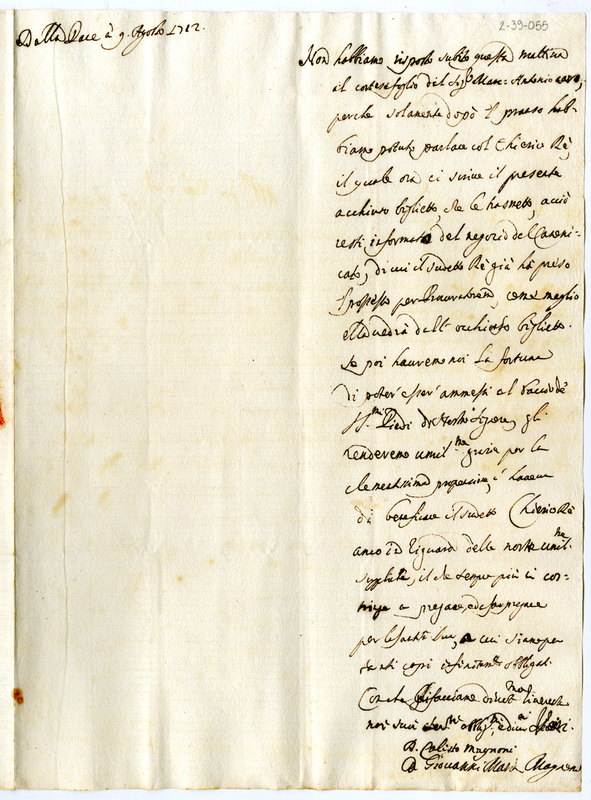 2-39-055
Dalla Pace à 9. Agosto 1712.
Non habbiamo risposto subito questa mattina
al cortese foglio del Sig.r Marc' Antonio
perche solamente dopò il pranzo hab-
biamo potuto parlare col Chierico Rè,
il quale ora ci scrive il presente
acchiuso biglietto, che le trasmetto, acciò
resti informato del negozio del Canoni-
cato, di cui il sudetto Rè già hà preso
il possesso per Procuratorem, come meglio
ella vedrà dall' acchiuso biglietto.
Se poi havremo noi la fortuna
di poter' esser' ammessi al bacio de'
SS.mi Piedi di Nostro Signore, gli
renderemo umil.me grazie per la
clementissima propensione, è havere
di beneficare il sudetto Chierico Rè
anco in riguardo delle nostre umil.me
suppliche, il che sempre più ci cos-
tringe a pregare, e far pregare
per la Santità Sua, a cui siamo per
tanti capi infinitam.te obbligati.
Con che
noi suoi
D. Calisto Magnoni
D. Giovanni Maria Magnoni